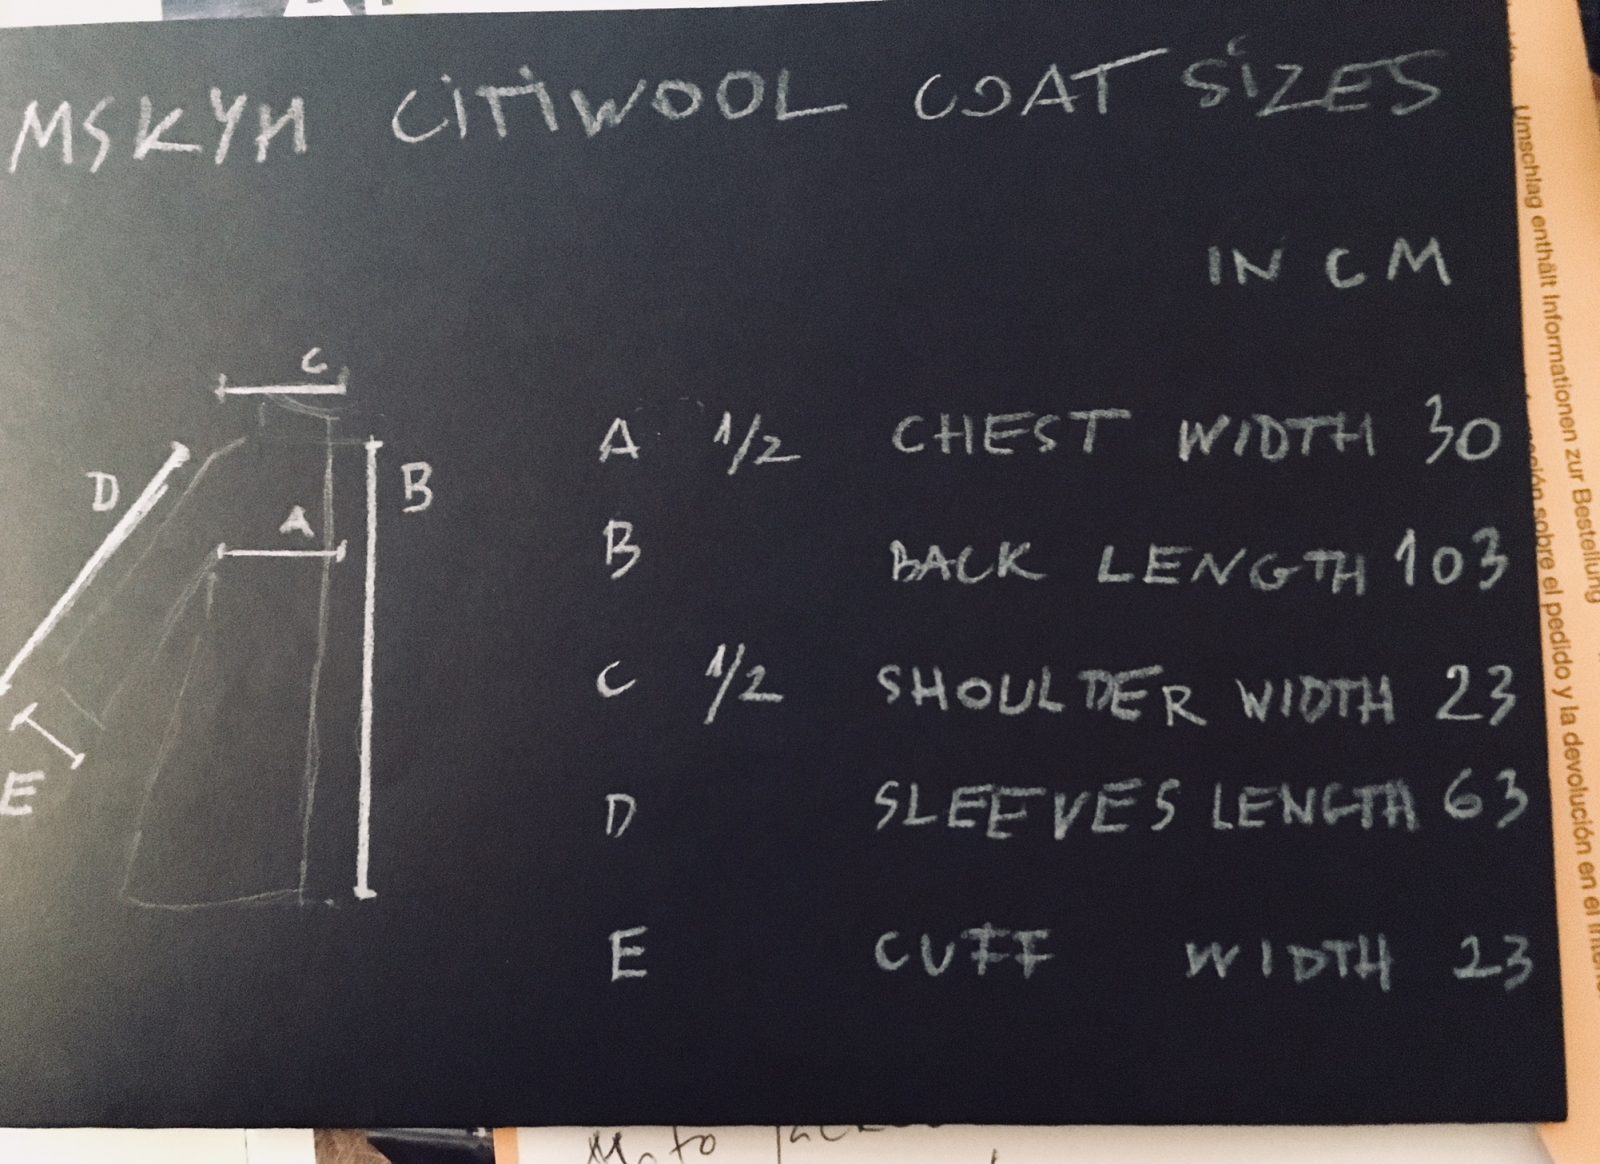 MSKYH CITIWOOL COAT SIZES
IN CM
C
D
B
A
E
A 1/2 CHEST WIDTH 30
B BACK LENGTH 103
C 1/2 SHOULDER WIDTH 23
D SLEEVES LENGTH 63
E CUFF WIDTH 23
Umschlag enthält Informationen zur Bestellung
sobre el pedido y la devolución en el
Moto